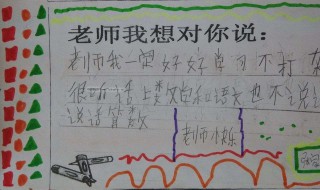 老师我想对你说：
老师我一定好好学习不打
很听话上数学和语文也不说
说话算数
老师快乐